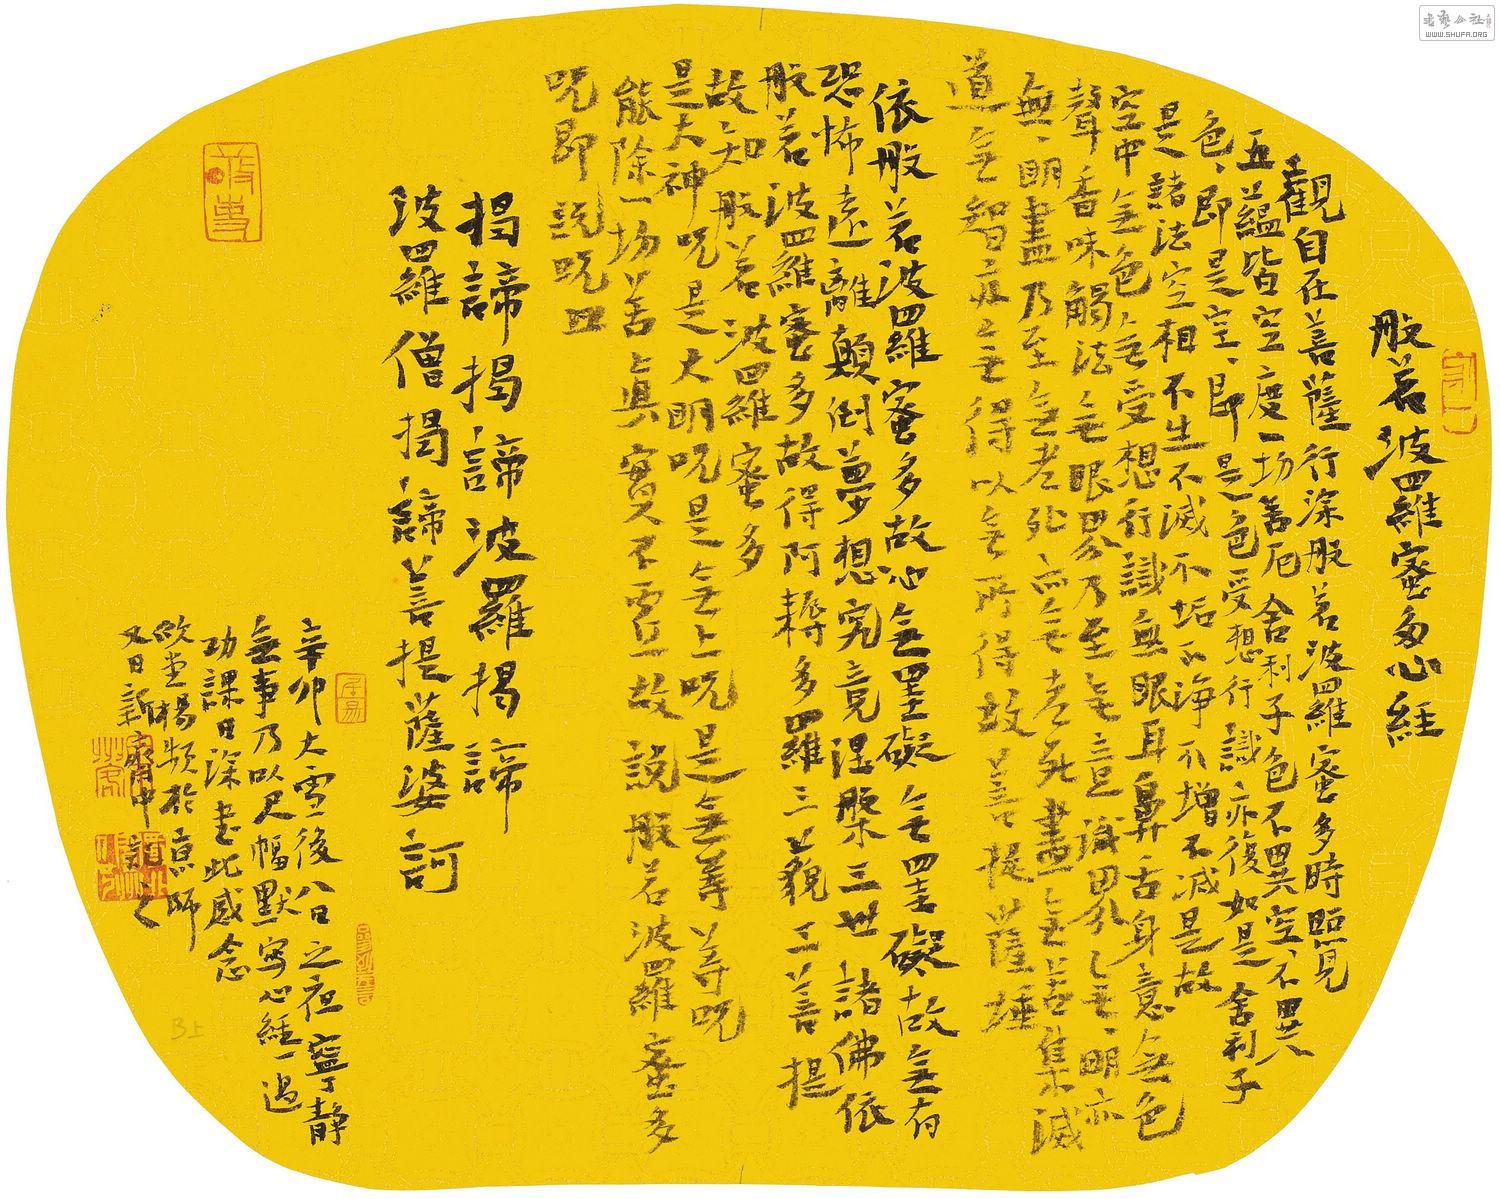 般若波羅蜜多心經
觀自在菩薩行深般若波羅蜜多時照見
五蘊皆空度一切苦厄舍利子色不異空、不異
色、即是空、即是色受想行識亦復如是舍利子
是諸法空相不生不滅不垢不净不增不减是故
空中无色无受想行識無眼耳鼻舌身意无色
聲香味觸法无眼界乃至无意识界无、明亦
無、明盡乃至无老死亦无老死盡无苦集滅
道无智亦无得以无所得故菩提薩埵
依般若波羅蜜多故心无罣礙无罣礙故无有
恐怖遠離顛倒夢想究竟涅槃三世諸佛依
般若波羅蜜多故得阿耨多羅三藐三菩提
故知般若波羅蜜多
是大神呪是大明呪是无上呪是無等等呪
能除一切苦真實不虛故説般若波羅蜜多
呪即説呪曰
揭諦揭諦波羅揭諦
波羅僧揭諦菩提薩婆訶
辛卯大雪後八日之夜寧靜
無事乃以尺幅默寫心經一過
功課日深書此感念
楊頻於京師
又日新齋中
WWW.SHUFA.ORG